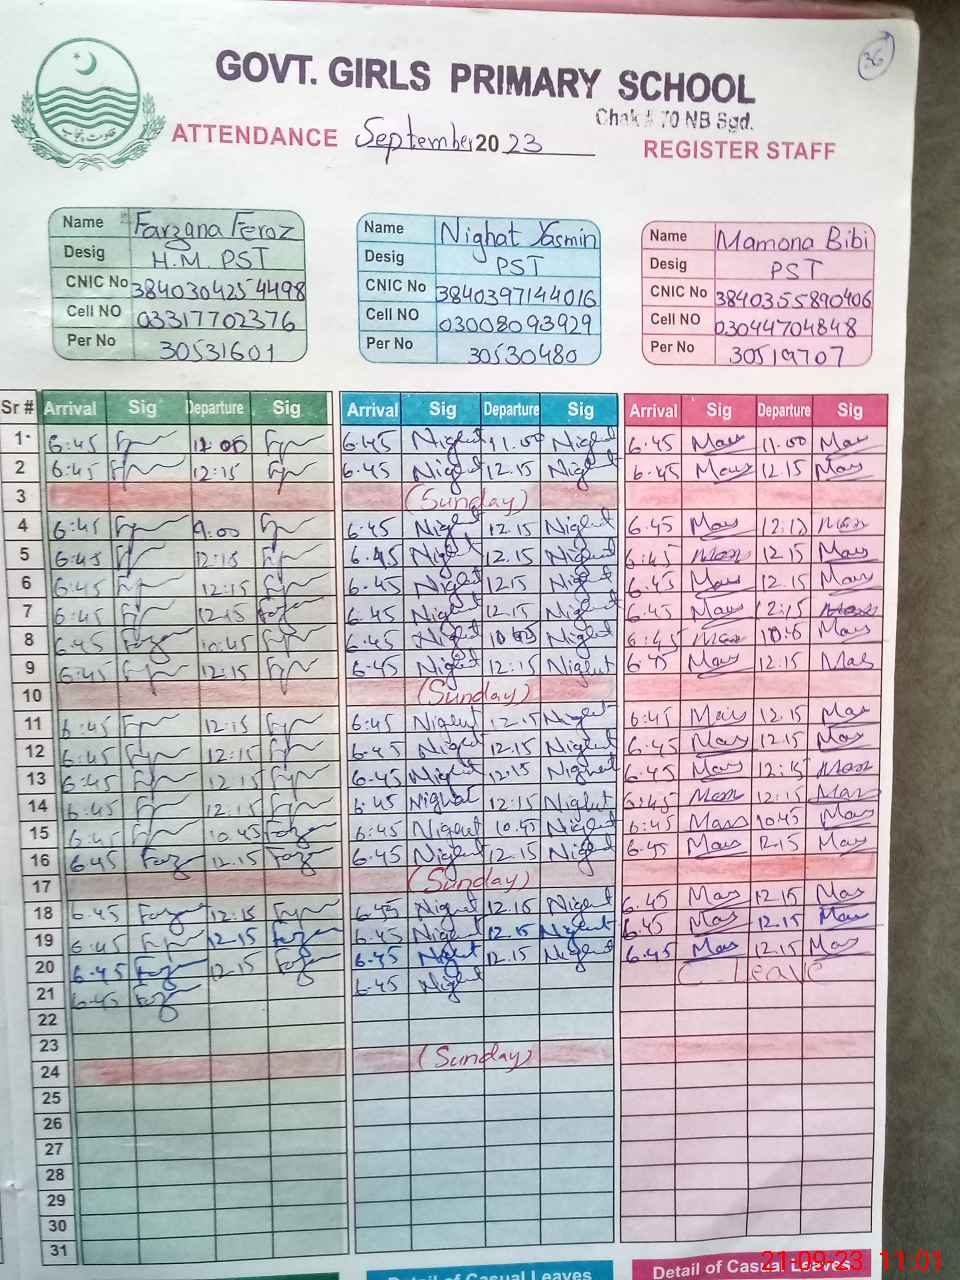 36
GOVT. GIRLS PRIMARY SCHOOL
Chak # 70 NB Sgd.
حکومت پنجاب
ATTENDANCE September 2023 REGISTER STAFF
Name Farzana Feroz
Desig H.M. PST
CNIC No 3840304254498
Cell NO 03317702376
Per No 30531601
Name Nighat Yasmin
Desig PST
CNIC No 3840397144016
Cell NO 03008093929
Per No 30530480
Name Mamona Bibi
Desig PST
CNIC No 3840355890406
Cell NO 03044704848
Per No 30519707
Sr # Arrival Sig Departure Sig Arrival Sig Departure Sig Arrival Sig Departure Sig
1 6:45 6.45 Night 11.00 Night 6.45 Mas 11.00 Mas
2 6:45 12:15 6.45 Night 12.15 Night 6.45 Mas 12.15 Mas
3 (Sunday)
4 6:45 9:00 6:45 Night 12.15 Night 6.45 Mas 12:15 Mas
5 6:45 12:15 6.45 Night 12.15 Night 6:45 Mas 12.15 Mas
6 6:45 12:15 6.45 Night 12.15 Night 6.45 Mas 12.15 Mas
7 6:45 12:15 6.45 Night 12.15 Night 6.45 Mas 12:15 Mas
8 6.45 10:45 6:45 Night Night 6:45 Mas Mas
9 6:45 12:15 6.45 Night 12:15 Night 6.45 Mas 12.15 Mas
10 (Sunday)
11 6:45 12:15 6:45 Night 12.15 Night 6:45 Mas 12.15 Mas
12 6:45 12:15 6.45 Night 12.15 Night 6.45 Mas 12.15 Mas
13 6:45 12:15 6.45 Night 12:15 Night 6.45 Mas 12:15 Mas
14 6:45 12:15 6:45 Night 12:15 Night 6:45 Mas 12:15 Mas
15 6:45 10.45 6:45 Night 10.45 Night 6:45 Mas 10.45 Mas
16 6.45 12.15 6.45 Night 12.15 Night 6.45 Mas 12.15 Mas
17 (Sunday)
18 6.45 12:15 6.45 Night 12.15 Night 6.45 Mas 12.15 Mas
19 6:45 12.15 6.45 Night 12.15 Night 6.45 Mas 12.15 Mas
20 6.45 12.15 6.45 Night 12.15 Night 6.45 Mas 12.15 Mas
21 6.45 6.45 Night C. Leave
22
23
24 (Sunday)
25
26
27
28
29
30
31
Detail of Casual Leaves Detail of Casual Leaves
21-09-23 11:01